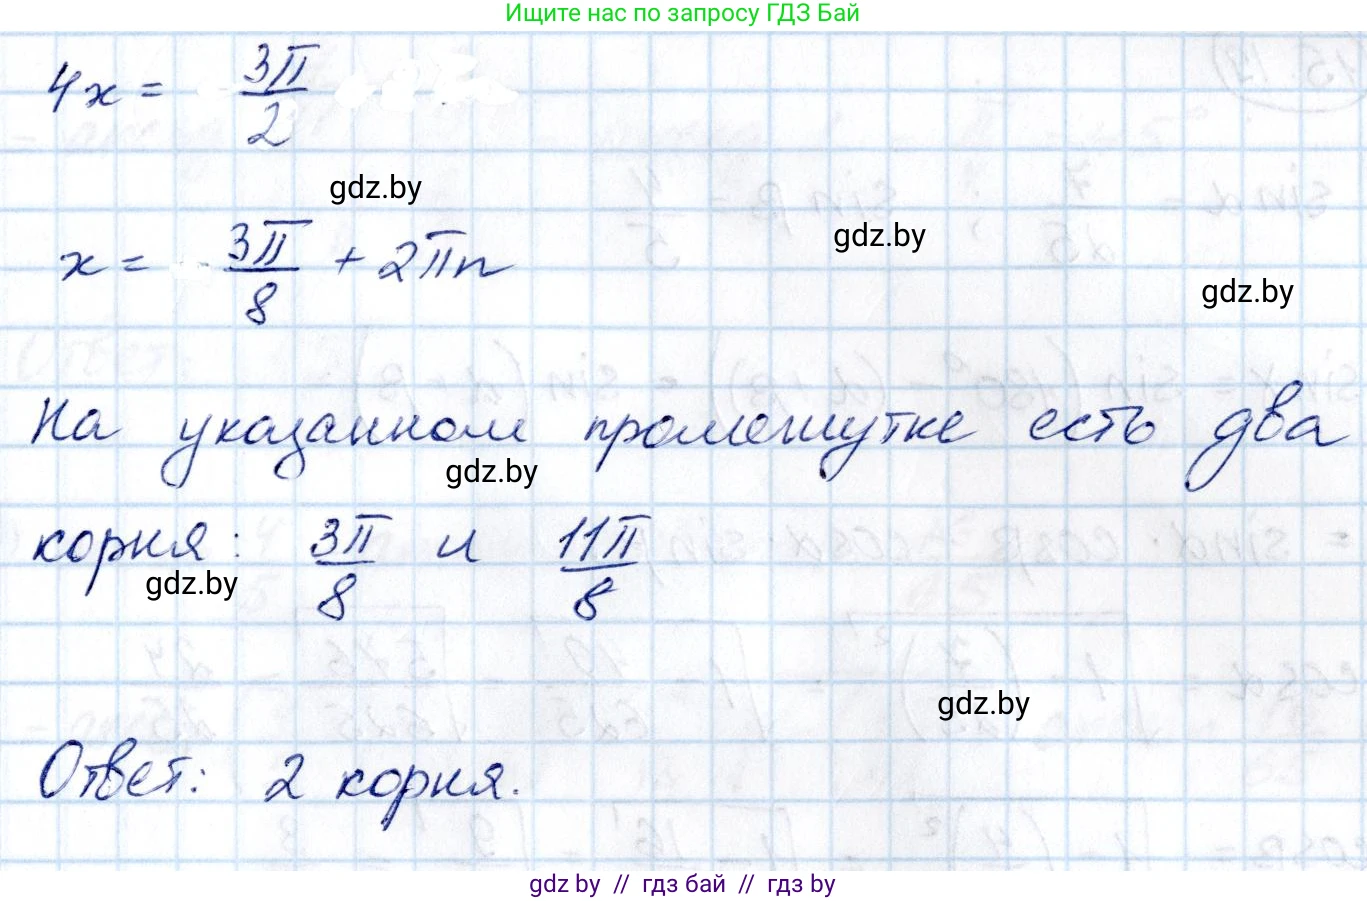 Ищите нас по запросу ГДЗ Бай
4x = 3π/2
gdz.by
x = 3π/8 + 2πn
gdz.by
gdz.by
На указанном промежутке есть два
gdz.by
корня: 3π/8 и 11π/8
gdz.by
gdz.by
Ответ: 2 корня.
gdz by // гдз бай // гдз by